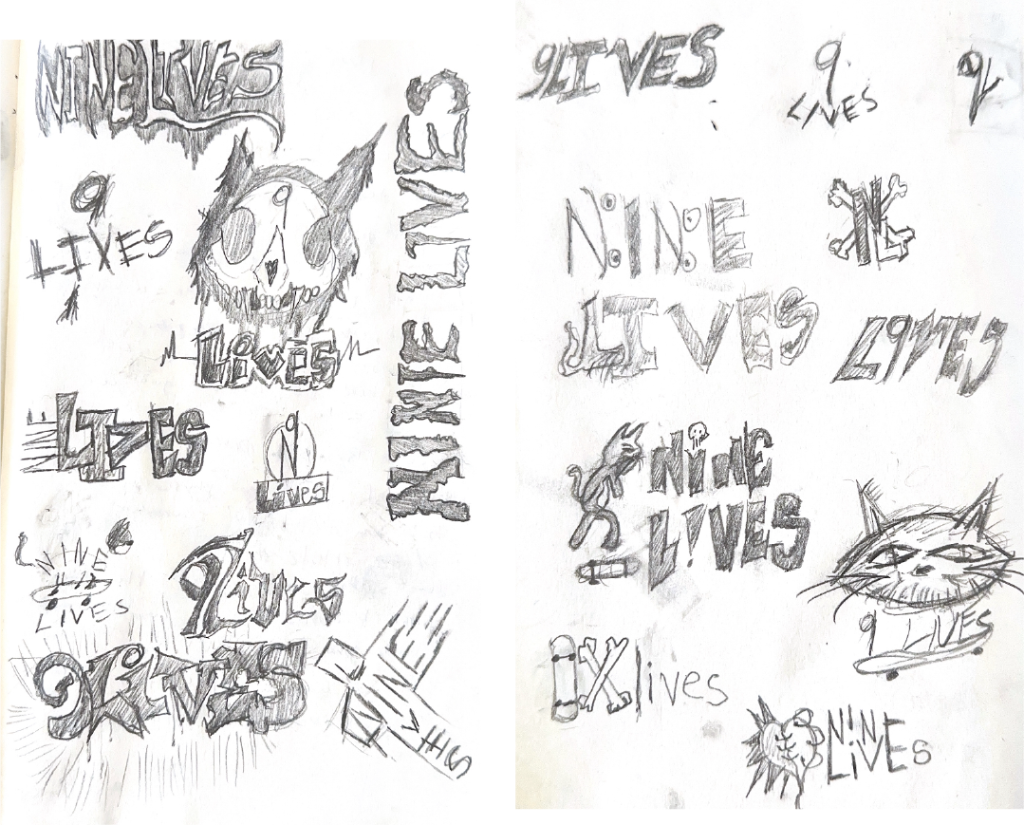 NINE LIVES
9
LIVES
9
LIVES
NINE LIVES
NINE
LIVES
9
N
LIVES
NINE
LIVES
9 LIVES
9 LIVES
NINE
LIVES
9LIVES
9
LIVES
9L
NINE
LIVES
NL
L9VES
NINE
L!VES
9 LIVES
IX lives
NINE
LIVES